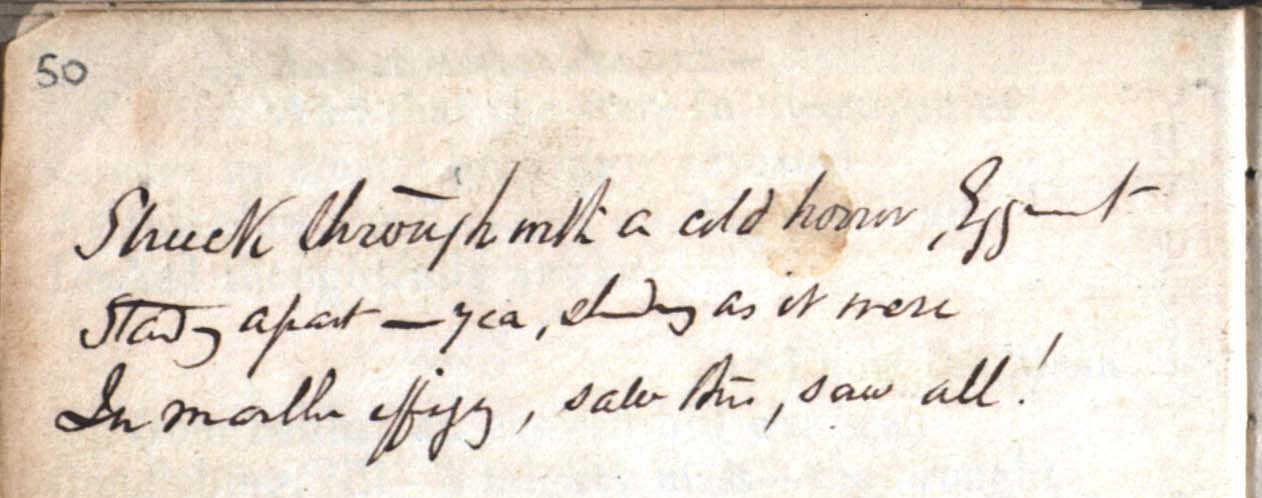 50
Struck through with a cold horror, Egremont
Standing apart — yea, standing as it were
In marble effigy, saw this, saw all!